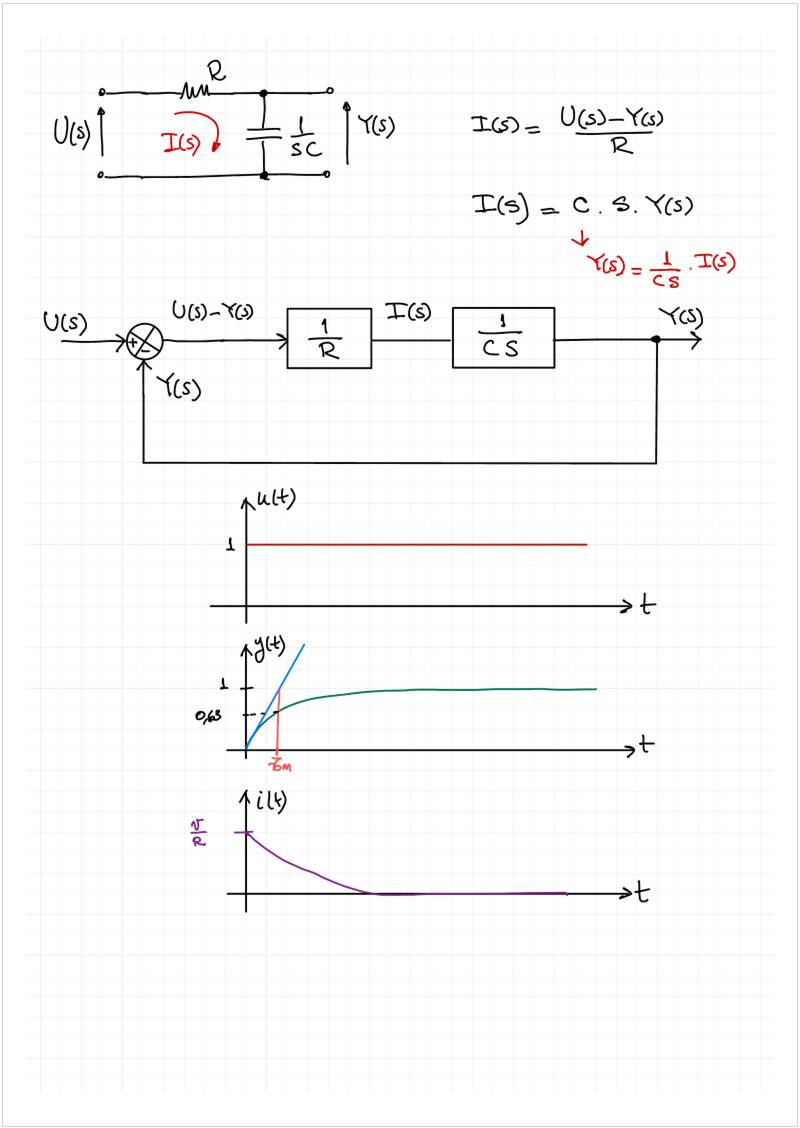 R
U(s)
I(s)
1/SC
Y(s)
I(s) = U(s)-Y(s)/R
I(s) = C . S . Y(s)
Y(s) = 1/CS . I(s)
U(s)
+
-
U(s)-Y(s)
1/R
I(s)
1/CS
Y(s)
Y(s)
u(t)
1
t
y(t)
1
0,63
t
i(t)
t